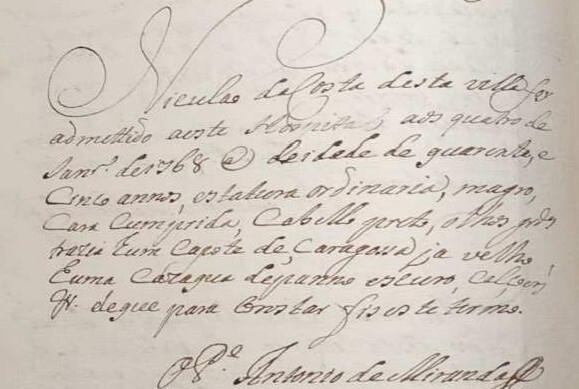 Niculao da Costa desta villa foy
admettido aeste Hospital, aos quatro de
Janr.º de 1768 @ deidade de quarenta, e
Cinco annos, estatura ordinaria, magro,
Cara Cumprida, Cabello preto, olhos
trazia hum Capote de Caragossa ja velho
huma Cazaqua depanno escuro, Calções
& deque para Constar fis este termo.
O P.e Antonio de Miranda